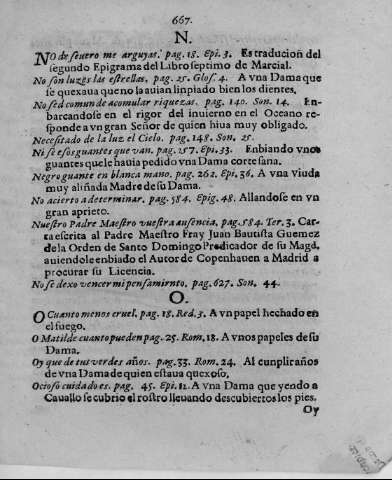 667.
N.
NO de severo me arguyas. pag. 18. Epi. 3. Es traducion del
segundo Epigrama del Libro septimo de Marcial.
No son luzes las estrellas. pag. 25. Glos. 4. A vna Dama que
se quexaua que no la auian linpiado bien los dientes.
No sed comun de acomular riquezas. pag. 140. Son. 14. En-
barcandose en el rigor del inuierno en el Oceano res-
ponde a vn gran Señor de quien hiua muy obligado.
Necesitado de la luz el Cielo. pag. 148. Son. 25.
Ni se esos guantes que van. pag. 257. Epi. 33. Enbiando vnos
guantes que le hauia pedido vna Dama cortesana.
Negro guante en blanca mano. pag. 262. Epi. 36. A vna viuda
muy aliñada Madre de su Dama.
No acierto a determinar. pag. 584. Epig. 48. Allandose en vn
gran aprieto.
Nuestro Padre Maestro vuestra ausencia. pag. 584. Ter. 3. Car-
ta escrita al Padre Maestro Fray Juan Bautista Guemez
de la Orden de Santo Domingo Predicador de su Magd.
auiendole enbiado el Autor de Copenhauen a Madrid a
procurar su Licencia.
No se dexo vencer mi pensamiento. pag. 627. Son. 44.
O.
O Cuanto menos cruel. pag. 18. Red. 3. A vn papel hechado en
el fuego.
O Matilde cuanto pueden pag. 25. Rom. 18. A vnos papeles de su
Dama.
Oy que de tus verdes años. pag. 33. Rom. 24. Al cunplir años
de vna Dama de quien estaua quexoso.
Ocioso cuidado es. pag. 45. Epi. 12. A vna Dama que yendo a
Cauallo se cubrio el rostro lleuando descubiertos los pies.
Oy